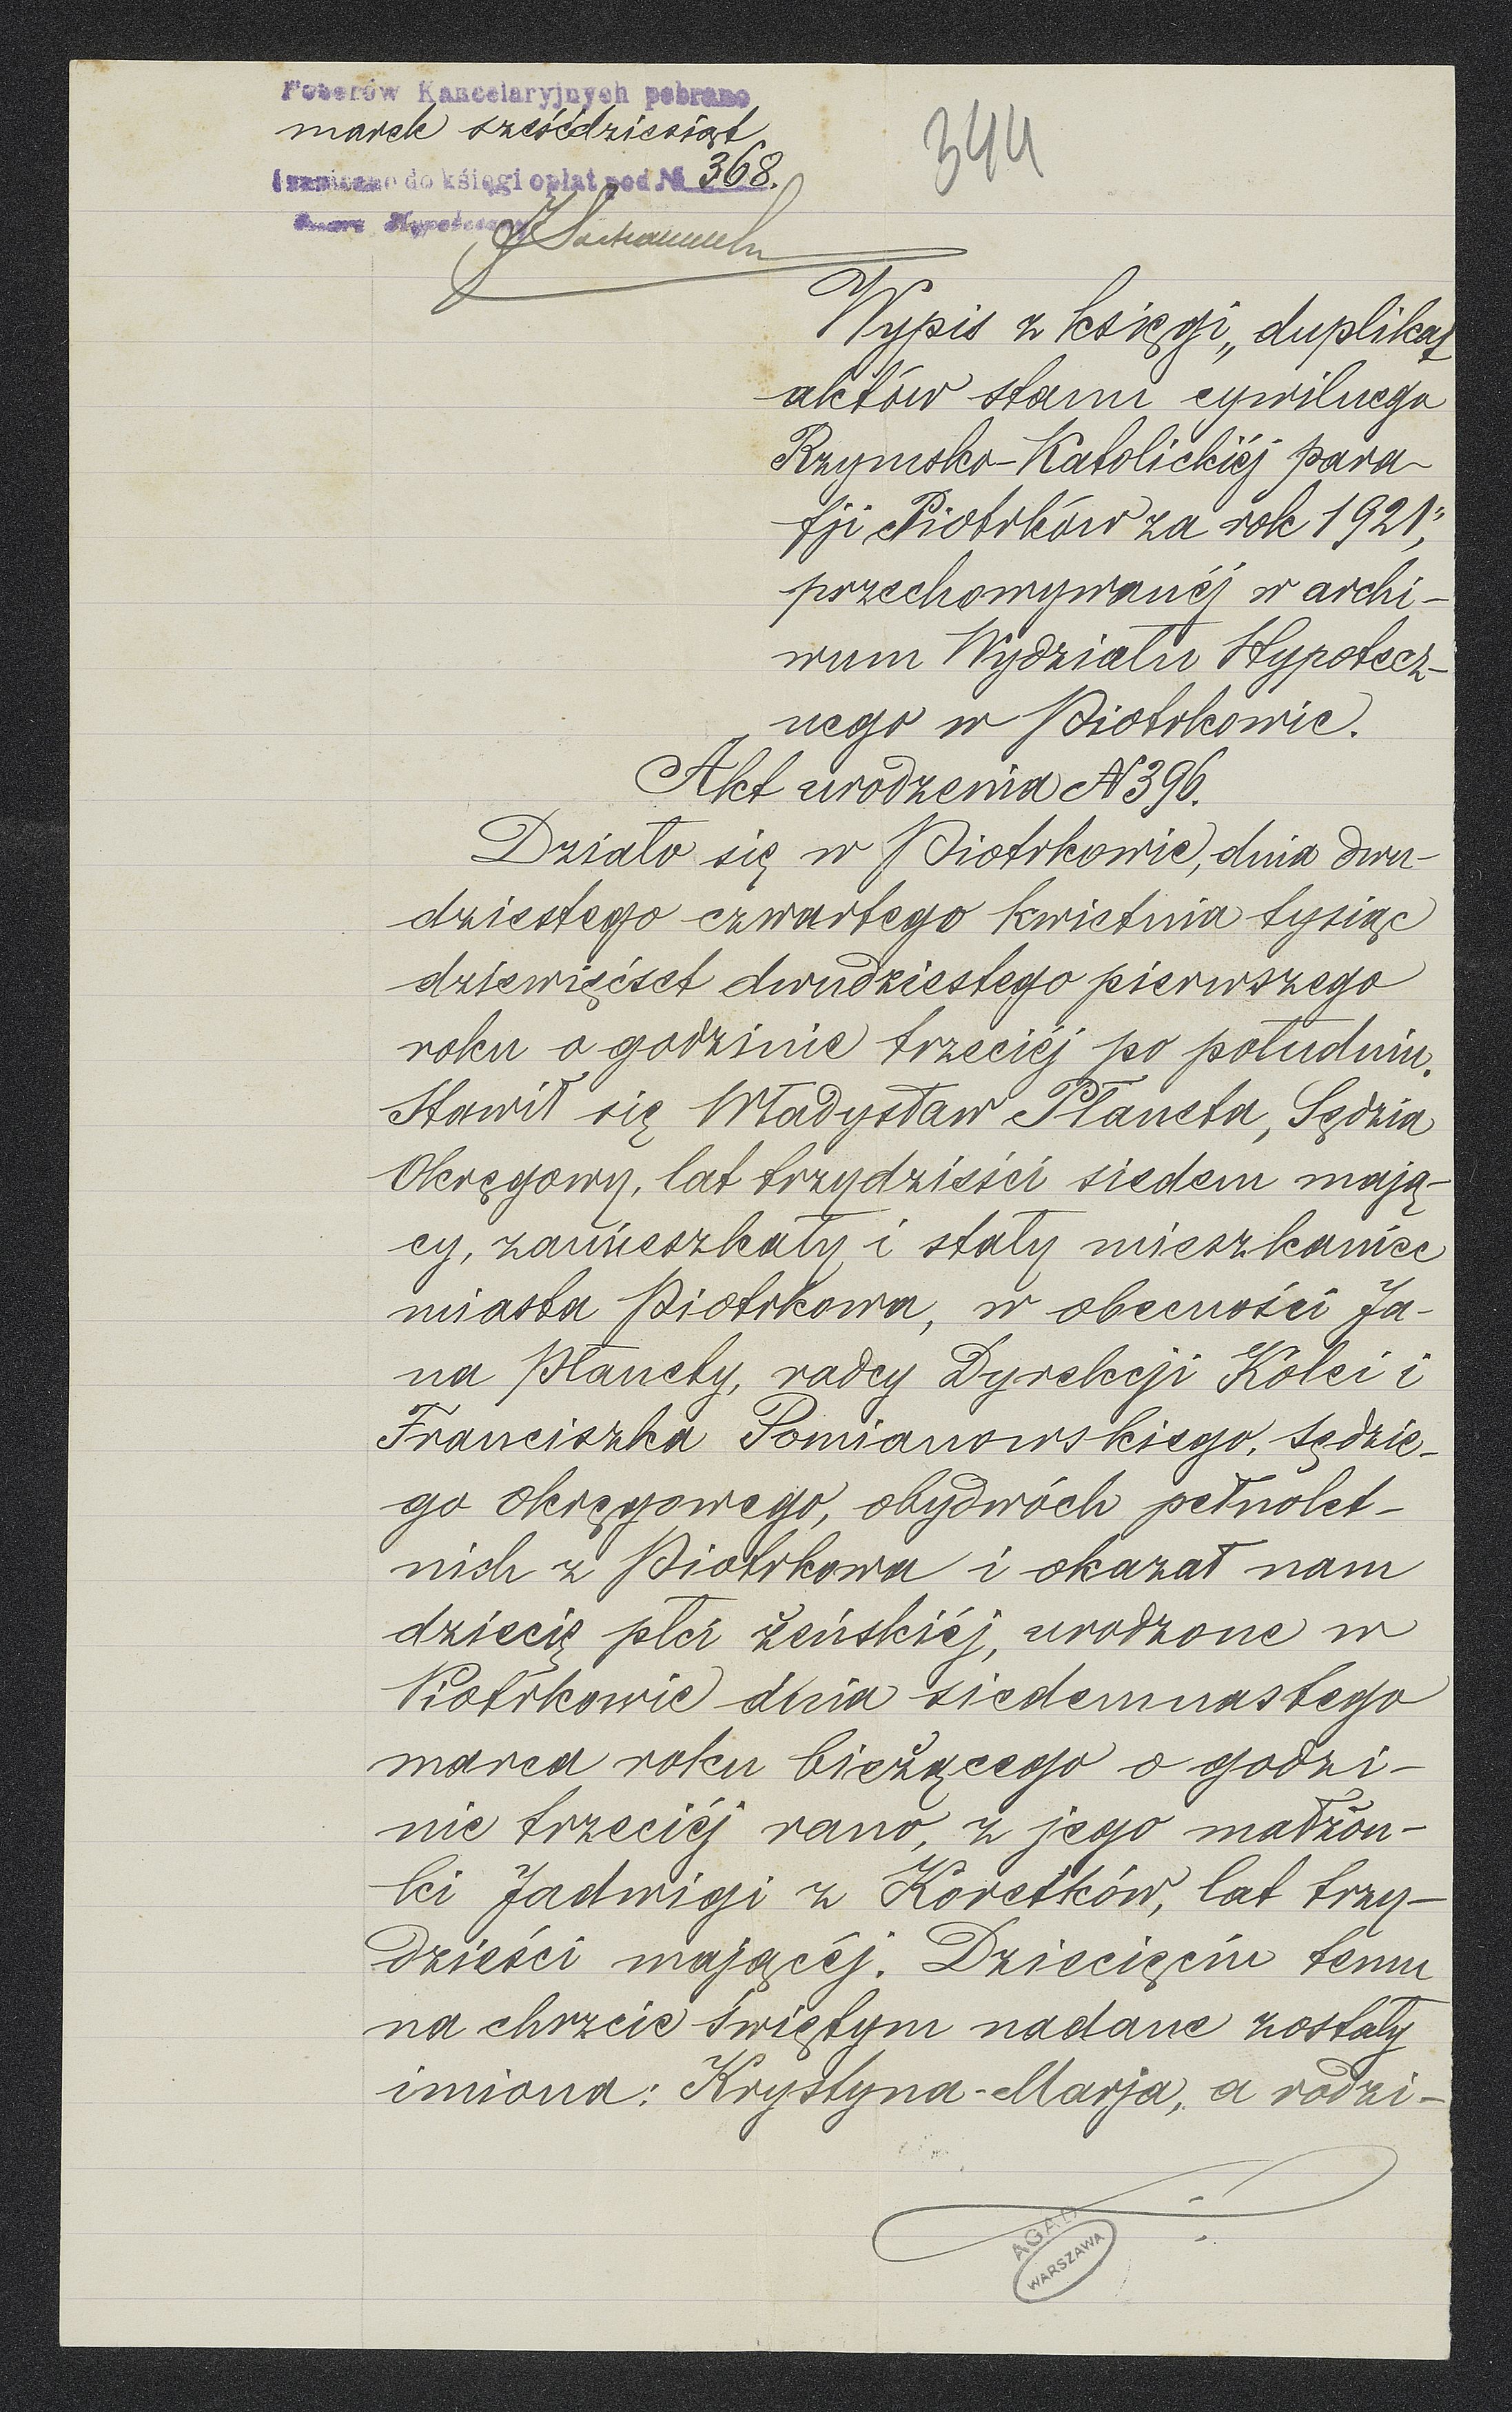 Poborów Kancelaryjnych pobrano
marek sześćdziesiąt
i zapisano do księgi opłat pod № 368.
344
Wypis z księgi „duplikat
aktów stanu cywilnego
Rzymsko-Katolickiéj para-
fji Piotrków za rok 1921",
przechowywanéj w archi-
wum Wydziału Hypotecz-
nego w Piotrkowie.
Akt urodzenia N 396.
Działo się w Piotrkowie, dnia dwu-
dziestego czwartego kwietnia tysiąc
dziewięćset dwudziestego pierwszego
roku o godzinie trzeciéj po południu.
Stawił się Władysław Płaneta, Sędzia
Okręgowy, lat trzydzieści siedem mają-
cy, zamieszkały i stały mieszkaniec
miasta Piotrkowa, w obecności Ja-
na Płanety, radcy Dyrekcji Kolei i
Franciszka Pomianowskiego, sędzie-
go okręgowego, obydwóch pełnolet-
nich z Piotrkowa i okazał nam
dziecię płci żeńskiéj, urodzone w
Piotrkowie dnia siedemnastego
marca roku bieżącego o godzi-
nie trzeciéj rano, z jego małżon-
ki Jadwigi z Koretków, lat trzy-
dzieści mającéj. Dziecięciu temu
na chrzcie świętym nadane zostały
imiona: Krystyna-Marja, a rodzi-
AGAD
WARSZAWA